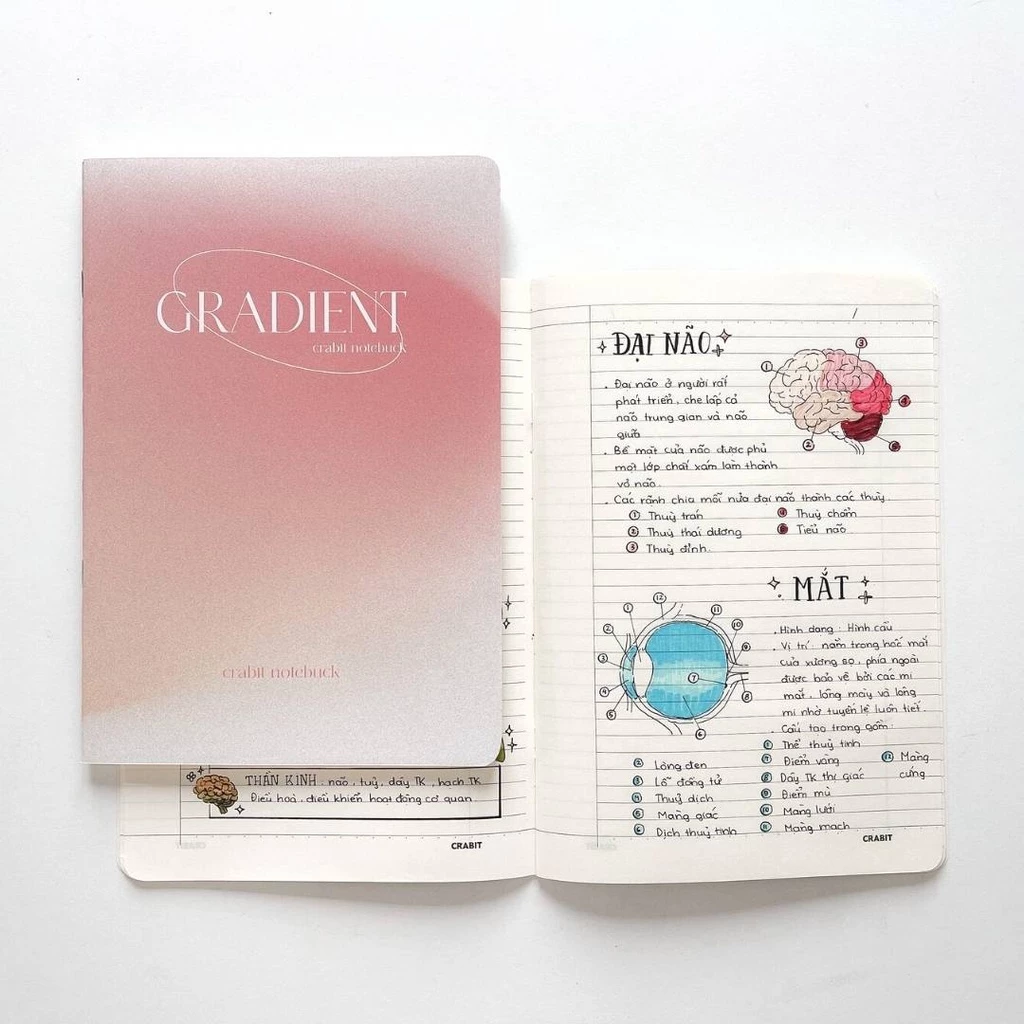 GRADIENT
crabit notebuck
crabit notebuck
THẦN KINH : não, tuỷ, dây TK, hạch TK
Điều hoà, điều khiển hoạt động cơ quan
CRABIT
ĐẠI NÃO
1
3
4
2
5
. Đại não ở người rất
phát triển, che lấp cả
não trung gian và não
giữa
. Bề mặt của não được phủ
một lớp chất xám làm thành
vỏ não.
. Các rãnh chia mỗi nửa đại não thành các thuỳ
1 Thuỳ trán
2 Thuỳ thái dương
3 Thuỳ đỉnh.
4 Thuỳ chẩm
5 Tiểu não
MẮT
12
1
11
2
10
3
9
7
4
8
5
6
. Hình dạng : Hình cầu
. Vị trí : nằm trong hốc mắt
của xương sọ, phía ngoài
được bảo vệ bởi các mi
mắt, lông mày và lông
mi nhờ tuyến lệ luôn tiết.
. Cấu tạo trong gồm :
1 Thể thuỷ tinh
2 Lòng đen
3 Lỗ đồng tử
4 Thuỷ dịch
5 Màng giác
6 Dịch thuỷ tinh
7 Điểm vàng
8 Dây TK thị giác
9 Điểm mù
10 Màng lưới
11 Màng mạch
12 Màng
cứng
CRABIT